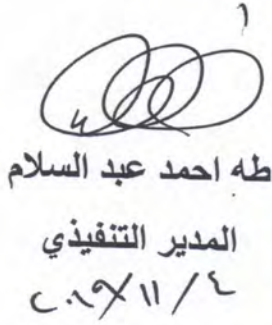 طه احمد عبد السلام
المدير التنفيذي
٢٠١٩/١١/٤